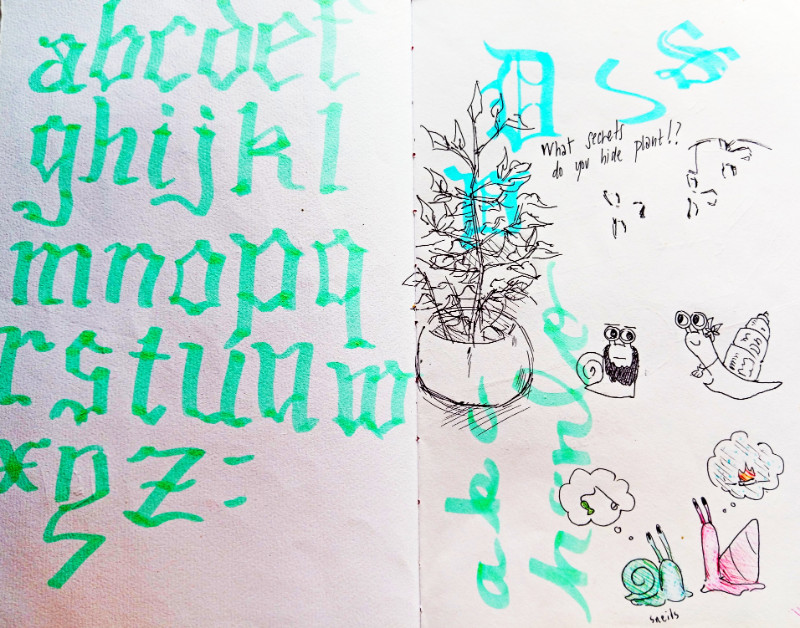 abcdef
ghijkl
mnopq
rstuvw
xyz:
D s s
What secrets
do you hide plant!?
m
sneils